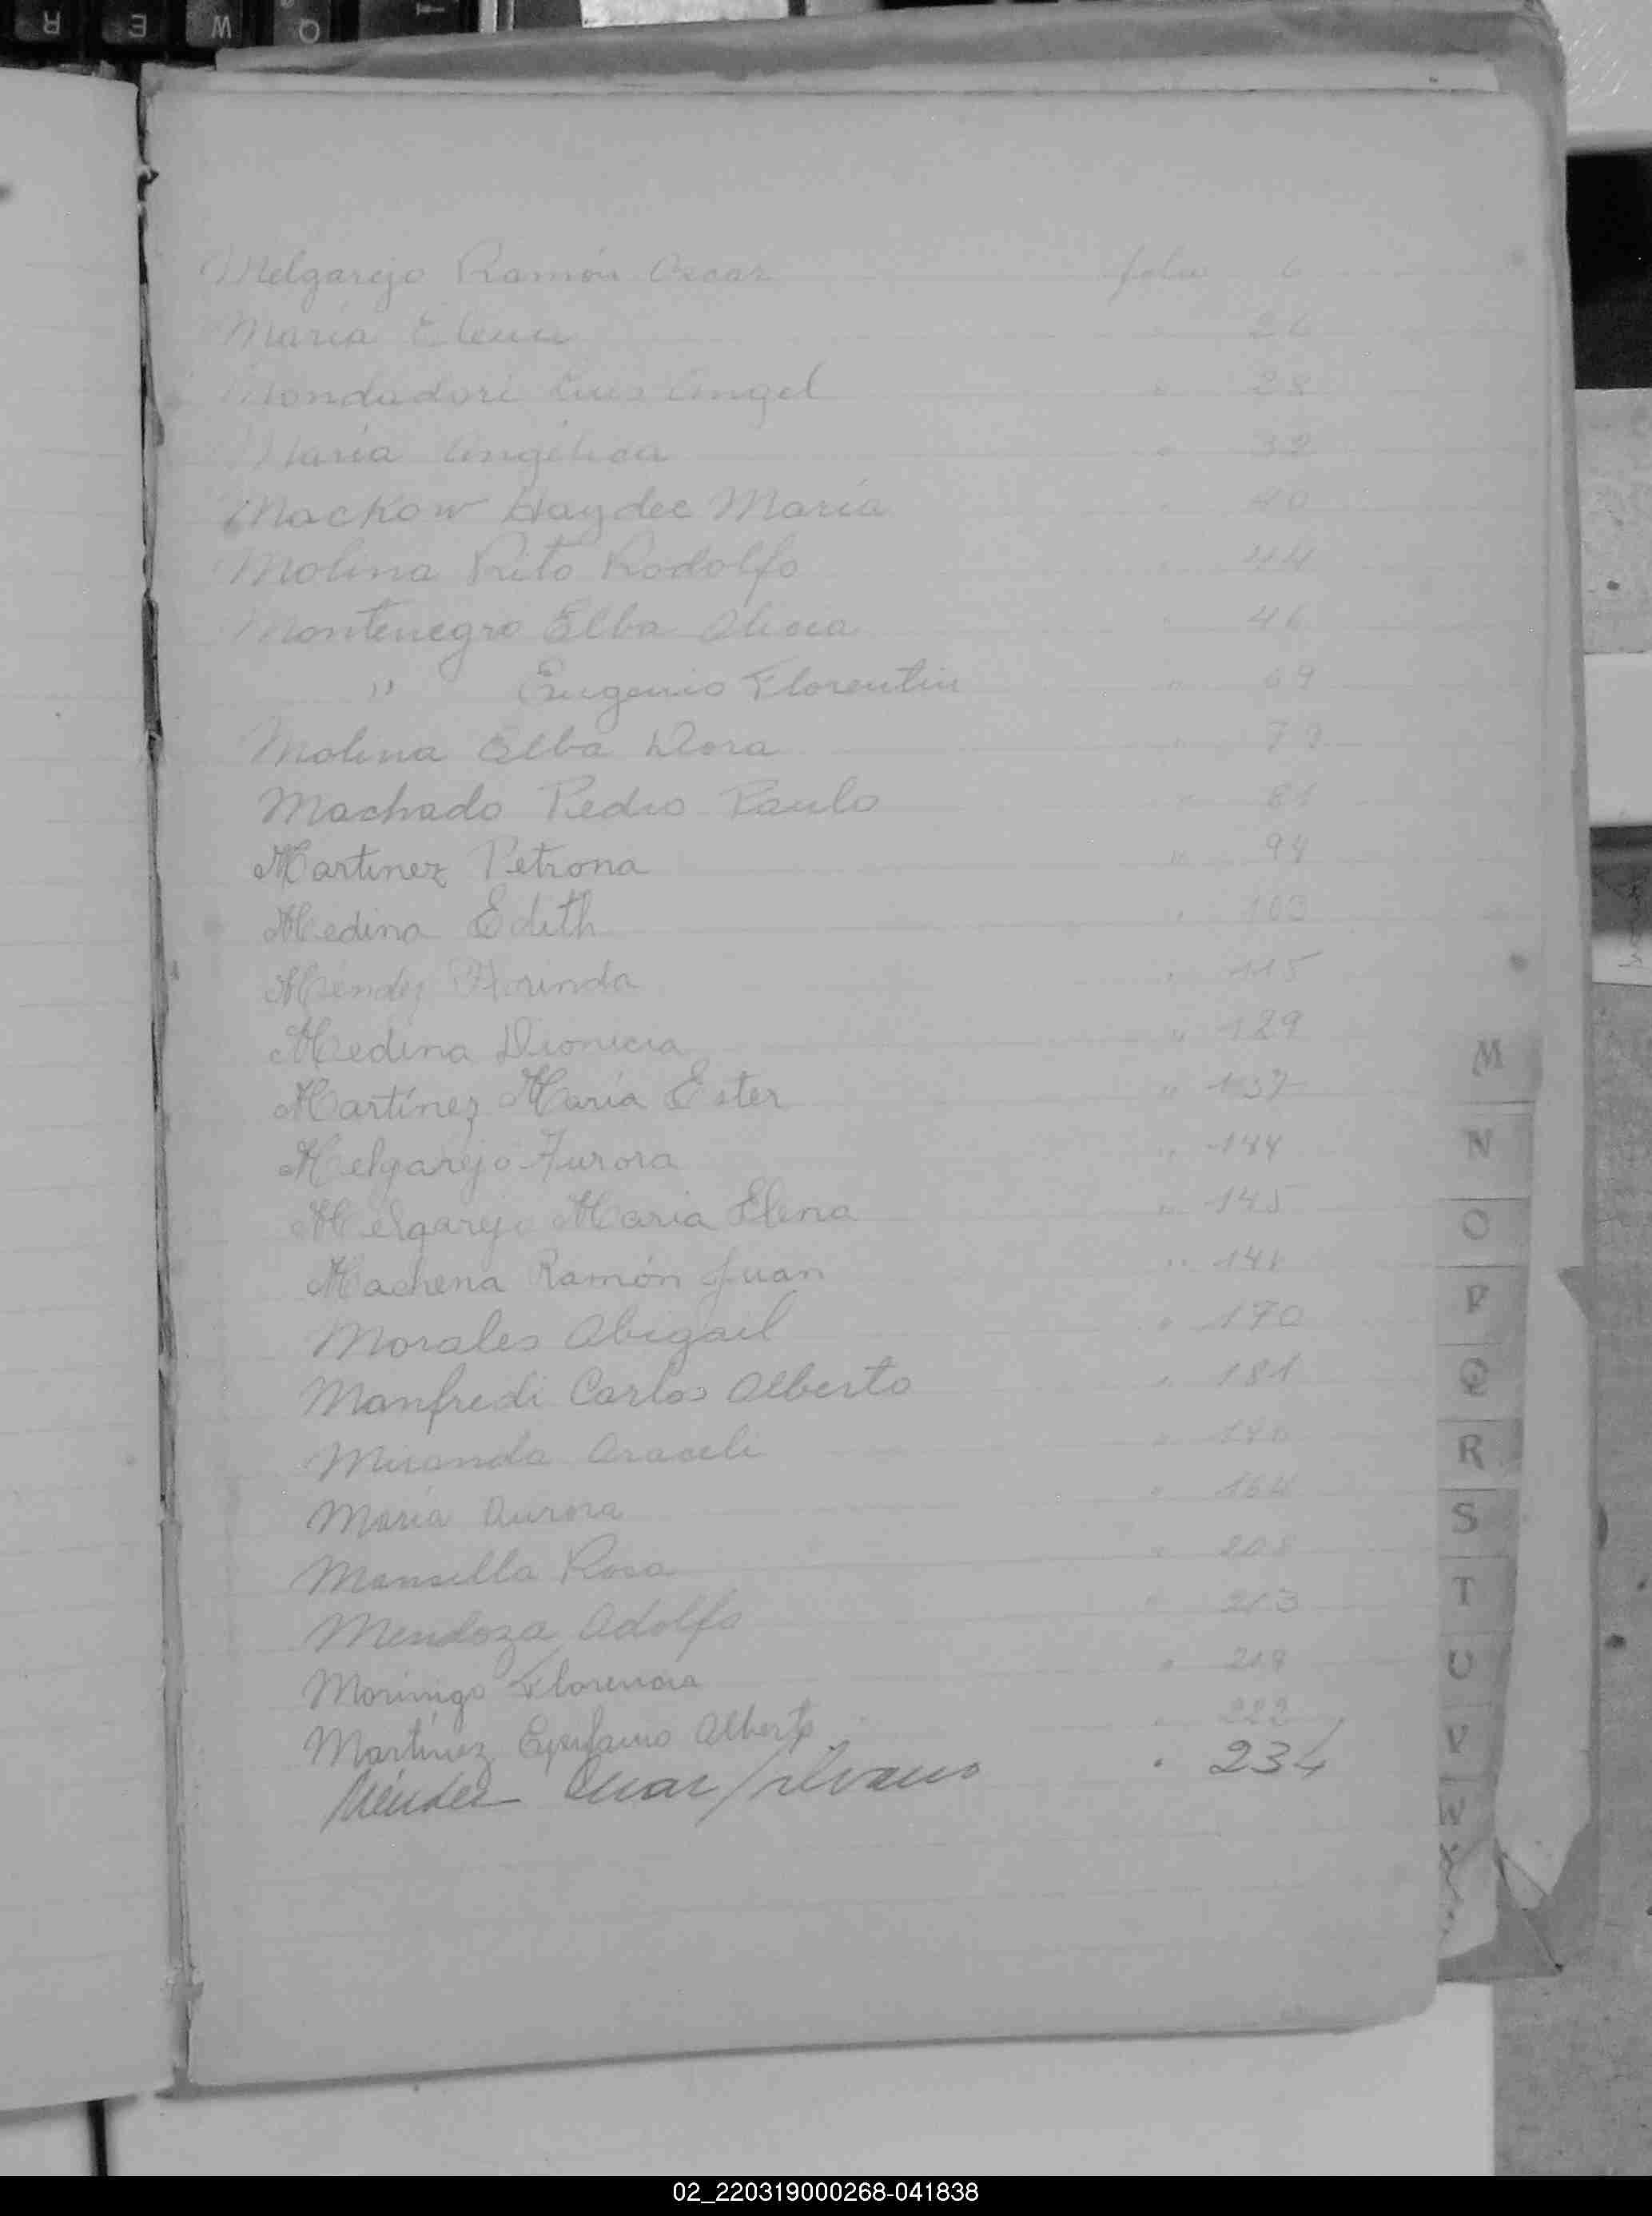 Melgarejo Ramón Oscar folio 6
María Elena " 26
Mondadori Luis Angel " 28
María Angélica " 39
Mackow Haydee María " 40
Molina Rito Rodolfo " 44
Montenegro Elba Alicia " 46
" Eugenio Florentin " 69
Molina Elba Dora "
Machado Pedro Paulo " 81
Martinez Petrona " 94
Medina Edith " 103
Méndez Florinda " 115
Medina Dionicia " 129
Martínez María Ester " 137
Melgarejo Aurora " 144
Melgarejo María Elena " 145
Machena Ramón Juan "
Morales Abigail " 170
Manfredi Carlos Alberto " 181
Miranda Araceli "
María Aurora " 164
Mansilla Rosa " 208
Mendoza Adolfo " 213
Moringo Florencia "
Martínez Epifanio Alberto " 222
Méndez Silvano " 234
M
N
O
P
Q
R
S
T
U
V
W
02_220319000268-041838